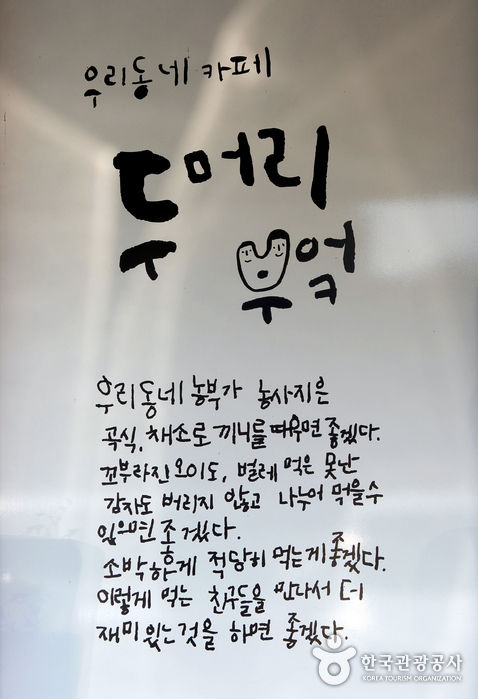 우리동네 카페
두머리
부엌
우리동네 농부가 농사지은
곡식, 채소로 끼니를 때우면 좋겠다.
꼬부라진 오이도, 벌레 먹은 못난
감자도 버리지 않고 나누어 먹을 수
있으면 좋겠다.
소박하게 적당히 먹는게 좋겠다.
이렇게 먹는 친구들을 만나서 더
재미있는것을 하면 좋겠다.
한국관광공사
KOREA TOURISM ORGANIZATION